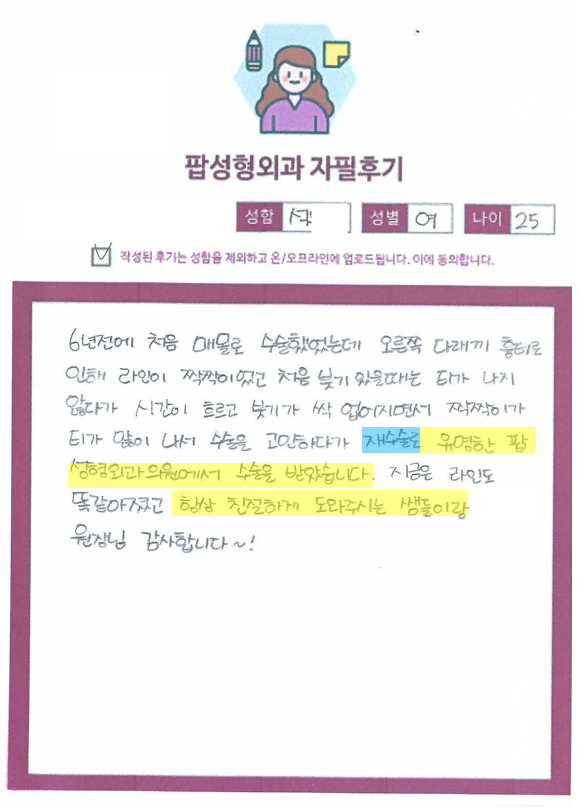 팝성형외과 자필후기
성함 성별 여 나이 25
작성된 후기는 성함을 제외하고 온/오프라인에 업로드됩니다. 이에 동의합니다.
6년전에 처음 매몰로 수술했었는데 오른쪽 다래끼 흉터로
인해 라인이 짝짝이였고 처음 붓기 있을때는 티가 나지
않다가 시간이 흐르고 붓기가 싹 없어지면서 짝짝이가
티가 많이 나서 수술을 고민하다가 재수술로 유명한 팝
성형외과의원에서 수술을 받았습니다. 지금은 라인도
똑같아졌고 항상 친절하게 도와주시는 쌤들이랑
원장님 감사합니다~!